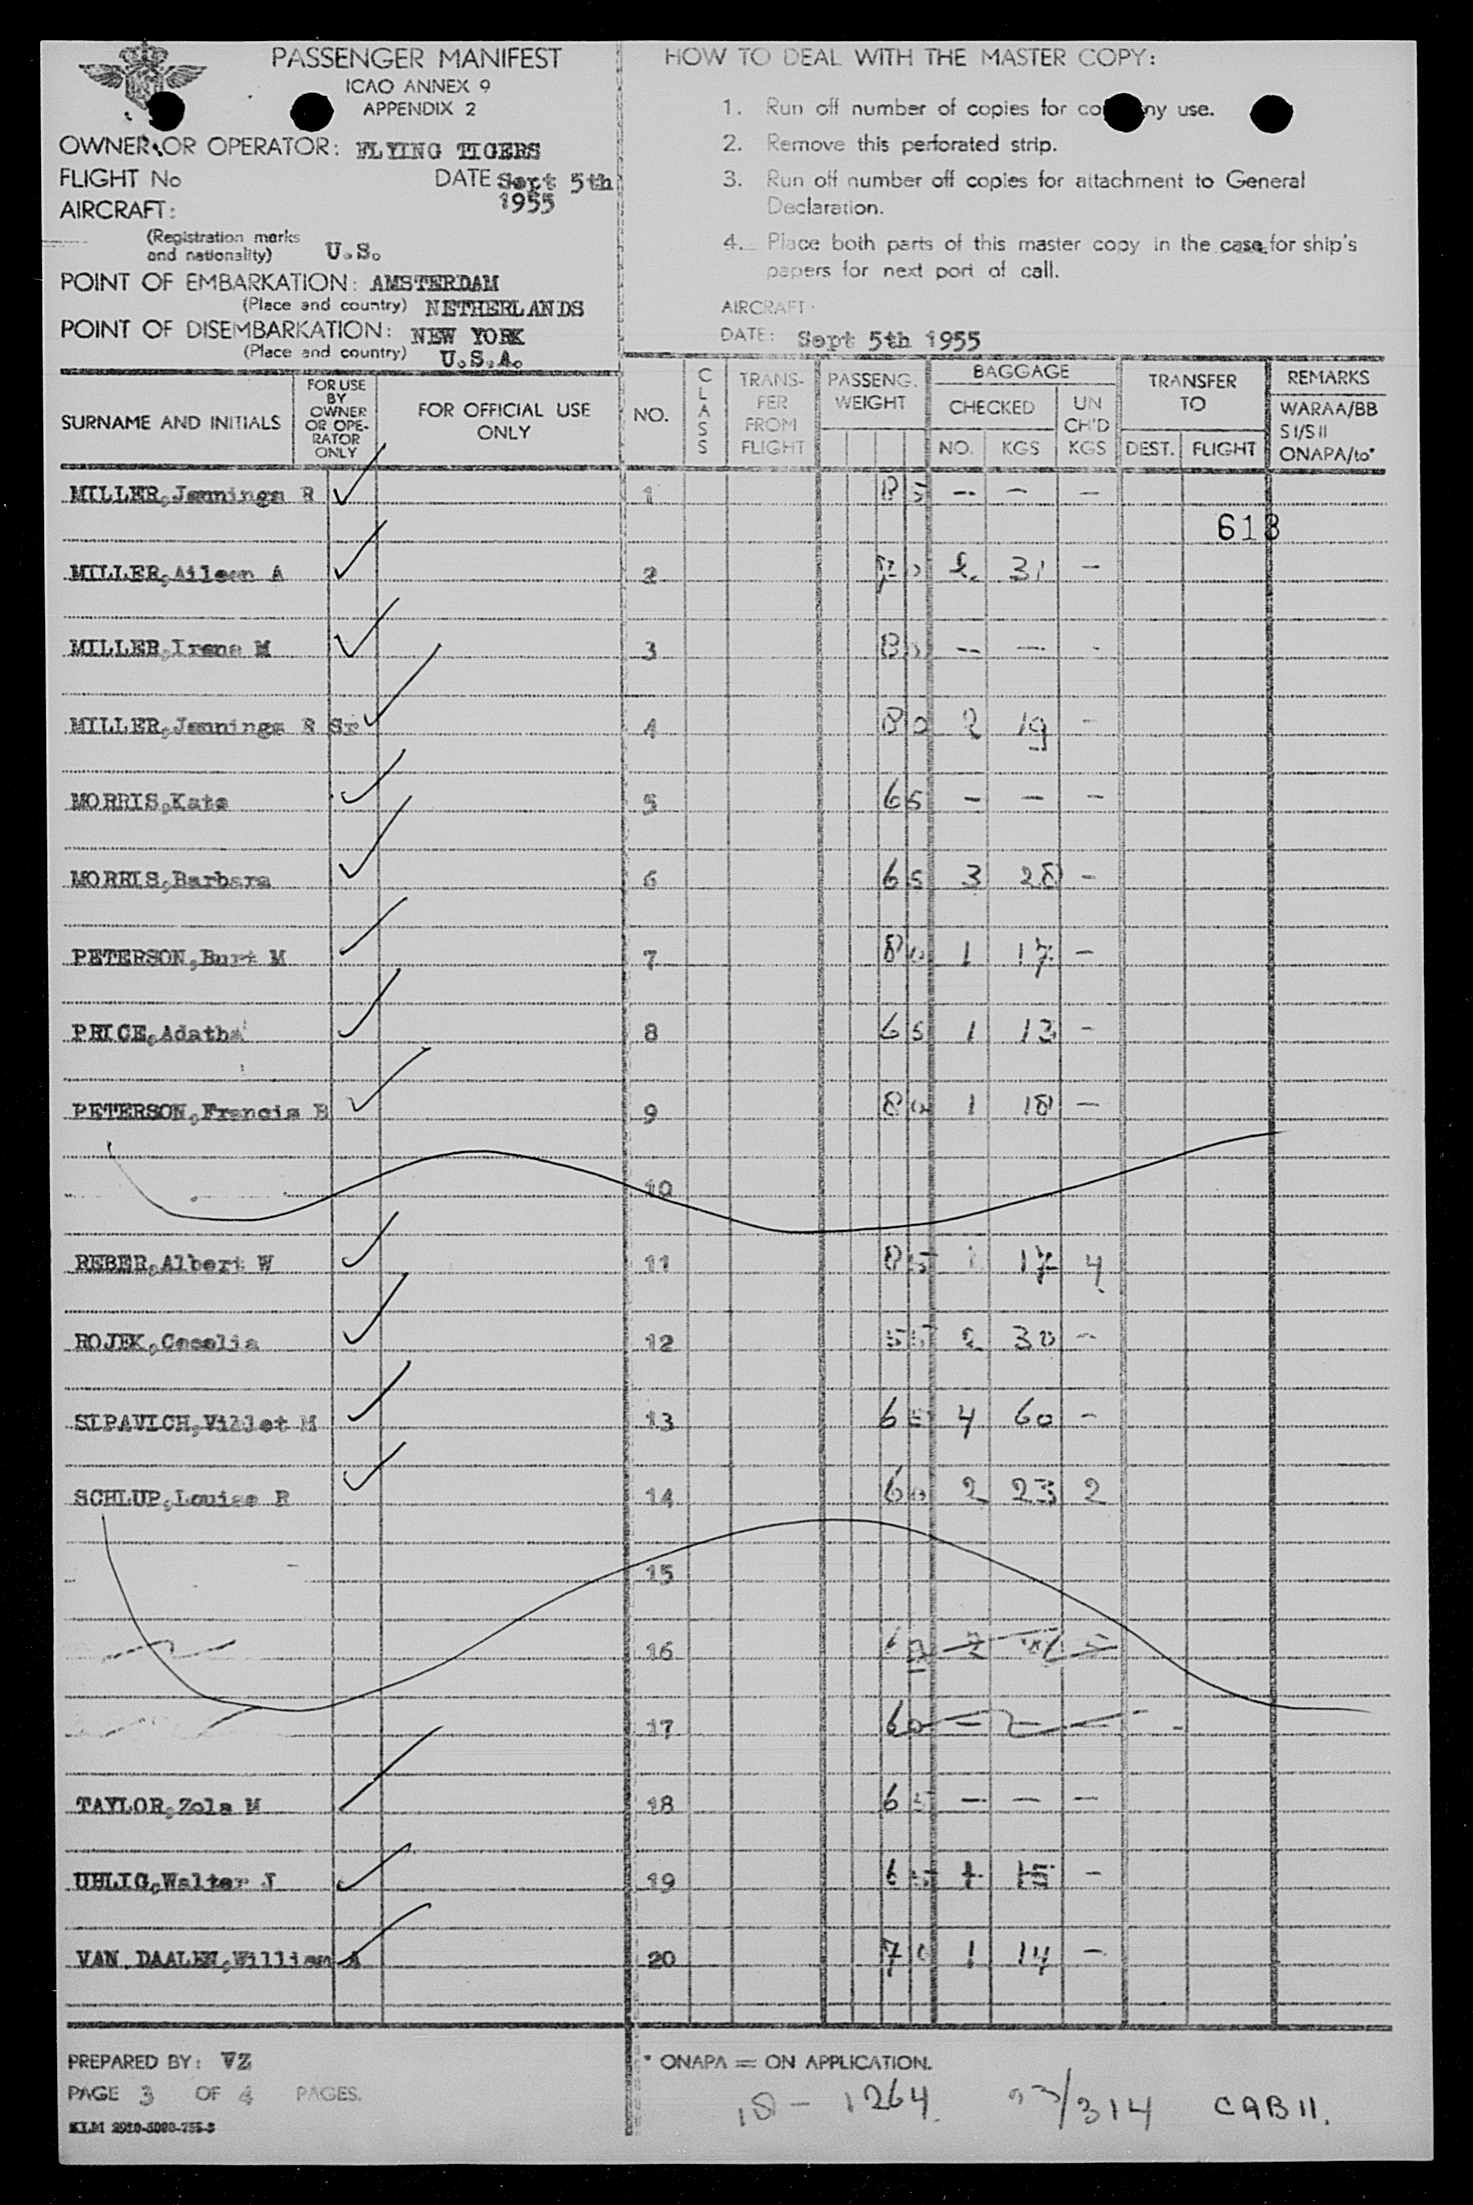 PASSENGER MANIFEST
ICAO ANNEX 9
APPENDIX 2
OWNER OR OPERATOR: FLYING TIGERS
FLIGHT No DATE Sept 5th
1955
AIRCRAFT:
(Registration marks
and nationality) U.S.
POINT OF EMBARKATION: AMSTERDAM
(Place and country) NETHERLANDS
POINT OF DISEMBARKATION: NEW YORK
(Place and country) U.S.A.
HOW TO DEAL WITH THE MASTER COPY:
1. Run off number of copies for company use.
2. Remove this perforated strip.
3. Run off number off copies for attachment to General
Declaration.
4. Place both parts of this master copy in the case for ship's
papers for next port of call.
AIRCRAFT:
DATE: Sept 5th 1955
SURNAME AND INITIALS
FOR USE
BY
OWNER
OR OPE-
RATOR
ONLY
FOR OFFICIAL USE
ONLY
NO.
CLASS
TRANS-
FER
FROM
FLIGHT
PASSENG.
WEIGHT
BAGGAGE
CHECKED
NO. KGS
UN
CH'D
KGS
TRANSFER
TO
DEST. FLIGHT
REMARKS
WARAA/BB
SI/SII
ONAPA/to*
MILLER,Jennings R 1 85 - - -
613
MILLER,Aileen A 2 31 -
MILLER,Irene M 3 80 - - -
MILLER,Jennings R Sr 4 80 2 19 -
MORRIS,Kate 5 65 - - -
MORRIS,Barbara 6 65 3 28 -
PETERSON,Burt M 7 80 1 17 -
PRICE,Adatha 8 65 1 13 -
PETERSON,Francis B 9 80 1 18 -
10
REBER,Albert W 11 85 1 17 4
ROJEK,Cecelia 12 55 2 30 -
SIPAVICH,Villet M 13 65 4 60 -
SCHLUP,Louise R 14 60 2 23 2
15
16
17 60 - - -
TAYLOR,Zola M 18 65 - - -
UHLIG,Walter J 19 65 1 15 -
VAN DAALEN,William A 20 70 1 14 -
PREPARED BY: VZ
PAGE 3 OF 4 PAGES.
* ONAPA = ON APPLICATION.
18 - 1264 /314 CAB 11.